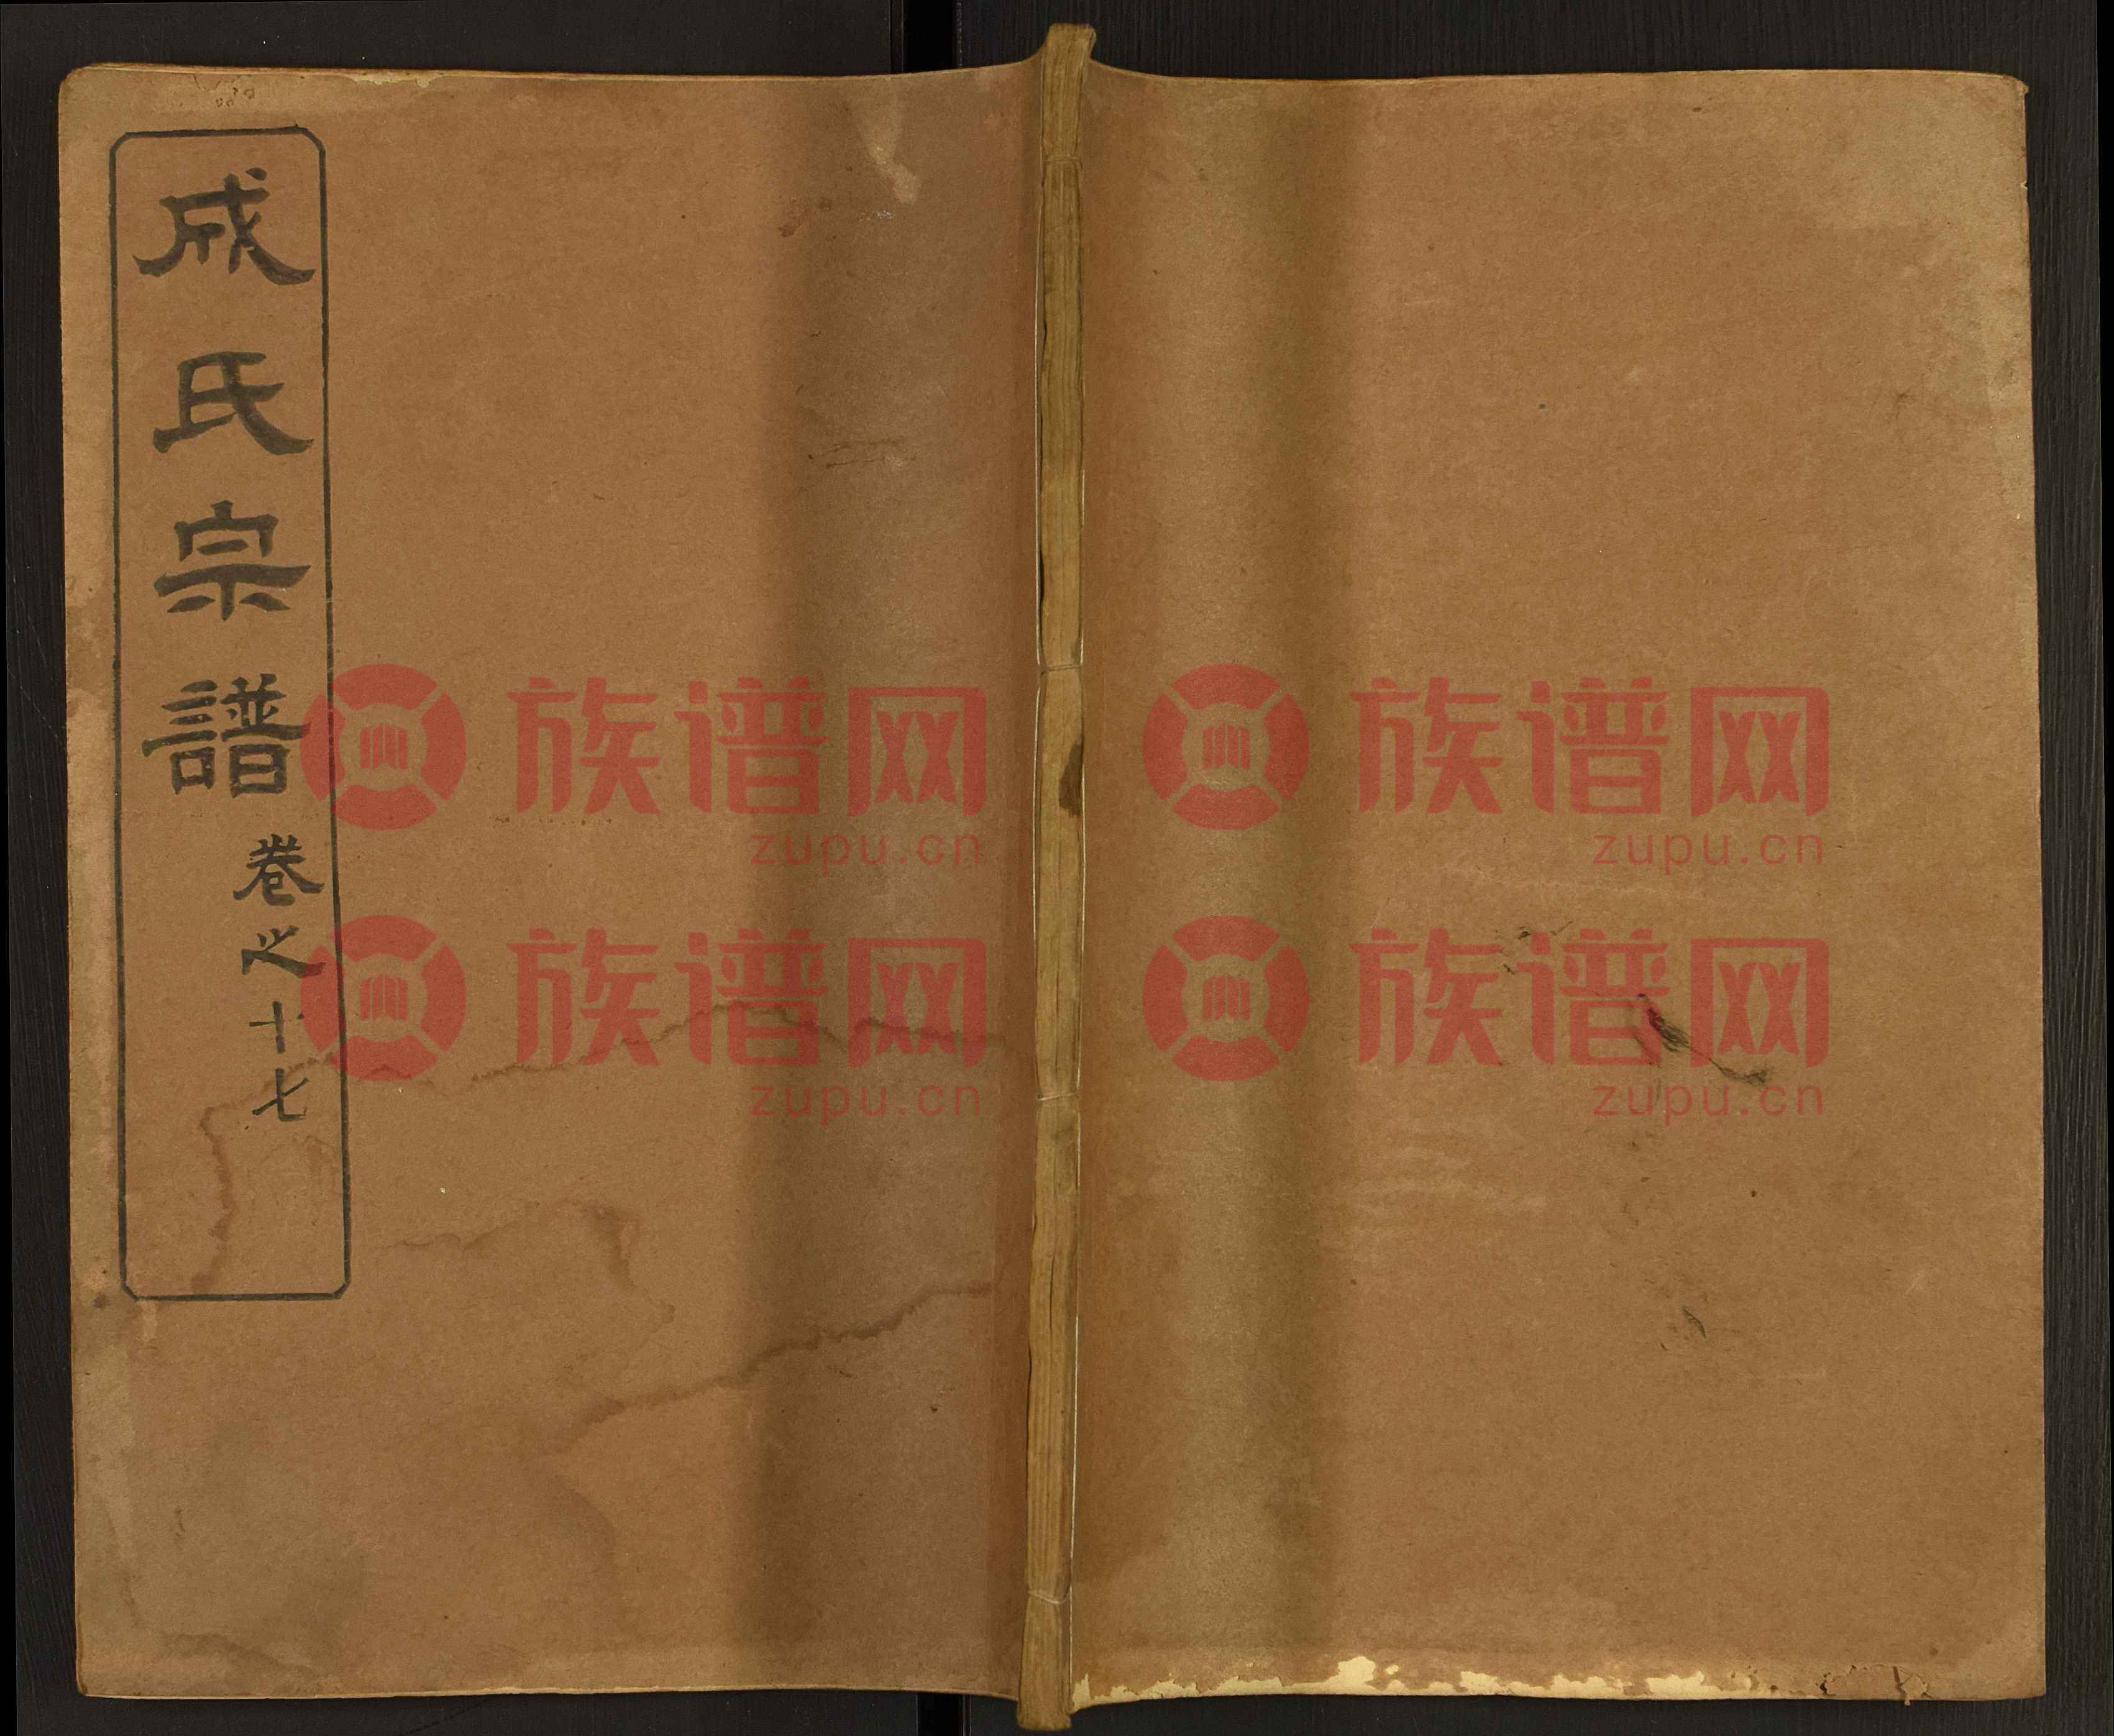 戚氏宗譜
卷之十七
族谱网 族谱网
zupu.cn zupu.cn
族谱网 族谱网
zupu.cn zupu.cn